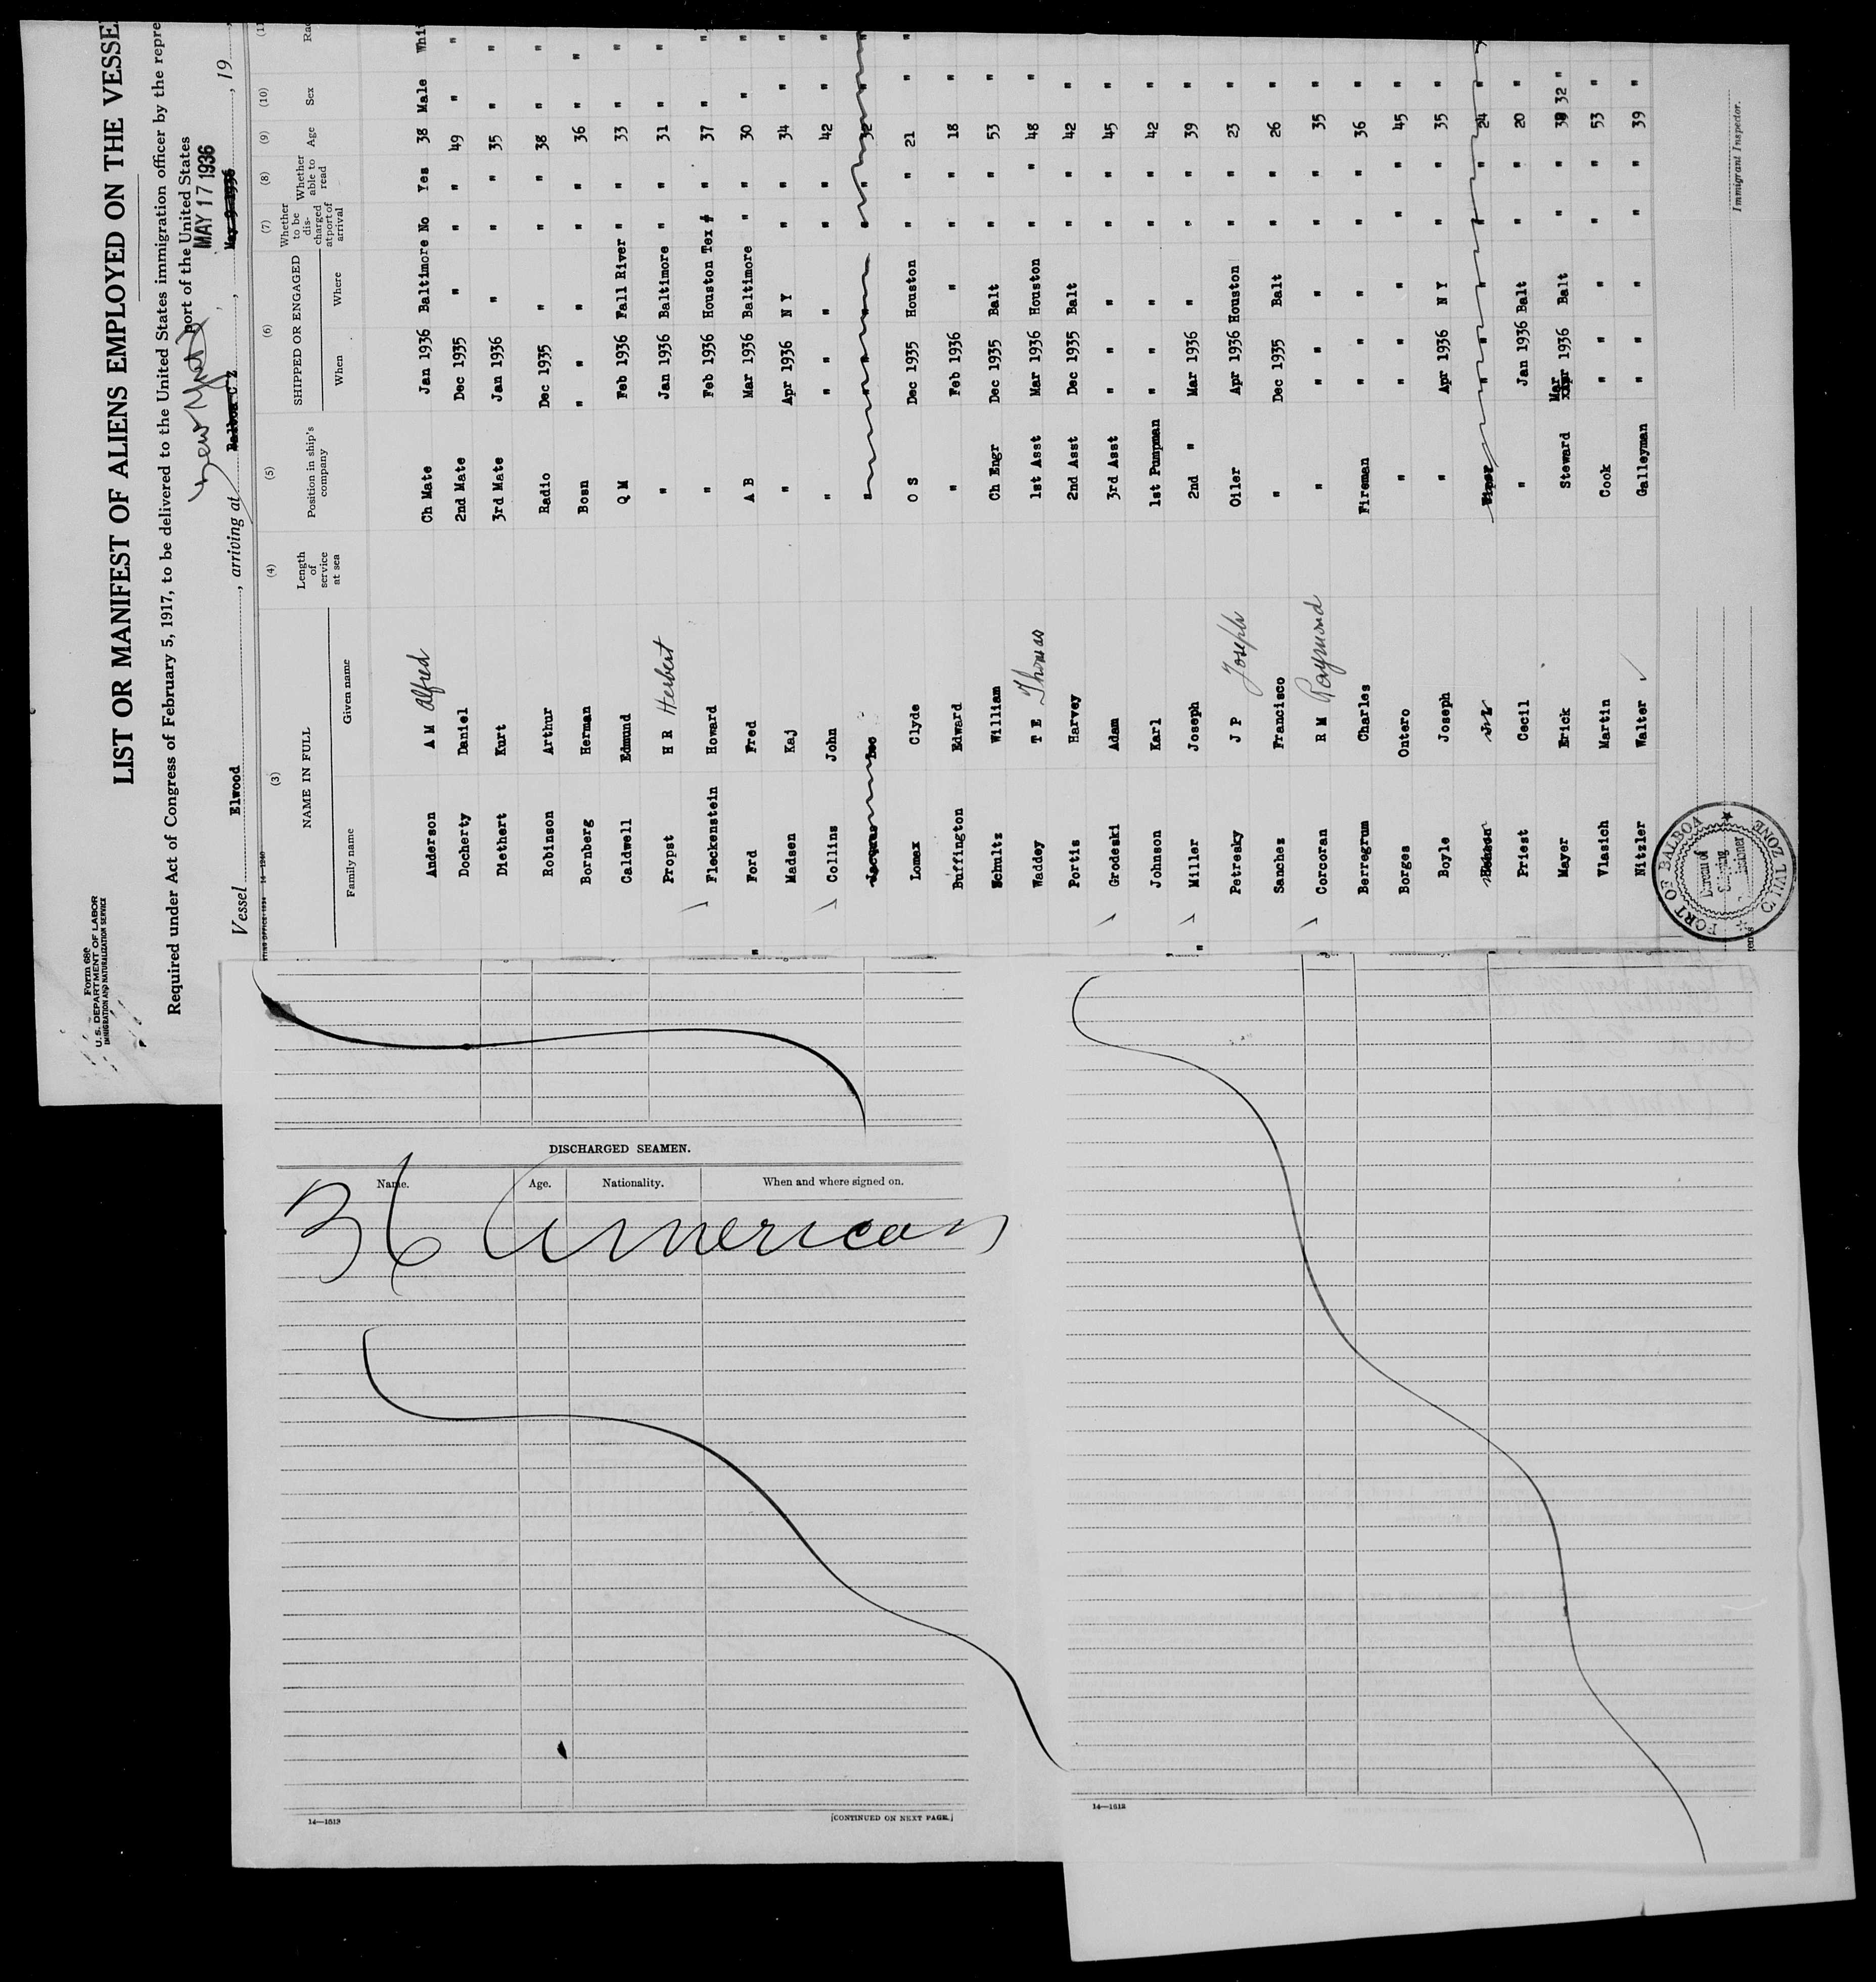 Form 680
U. S. DEPARTMENT OF LABOR
IMMIGRATION AND NATURALIZATION SERVICE
LIST OR MANIFEST OF ALIENS EMPLOYED ON THE VESSE
Required under Act of Congress of February 5, 1917, to be delivered to the United States immigration officer by the repre
port of the United States
New York MAY 17 1936
Vessel Elwood, arriving at Balboa C Z, May 9 1936, 19
14—1240
(3) (4) (5) (6) (7) (8) (9) (10)
NAME IN FULL Length of service at sea Position in ship's company SHIPPED OR ENGAGED Whether to be discharged at port of arrival Whether able to read Age Sex
Family name Given name When Where
Anderson A M Alfred Ch Mate Jan 1936 Baltimore No Yes 38 Male Whi
Docherty Daniel 2nd Mate Dec 1935 " " " 49 " "
Diethert Kurt 3rd Mate Jan 1936 " " " 35 " "
Robinson Arthur Radio Dec 1935 " " " 38 " "
Bornberg Herman Bosn " " " " 36 " "
Caldwell Edmund Q M Feb 1936 Fall River " " 33 " "
Propst H R Herbert " Jan 1936 Baltimore " " 31 " "
Fleckenstein Howard " Feb 1936 Houston Tex " " 37 " "
Ford Fred A B Mar 1936 Baltimore " " 30 " "
Madsen Kaj " Apr 1936 N Y " " 34 " "
Collins John " " " " " 42 " "
Lomax Clyde O S Dec 1935 Houston " " 21 " "
Buffington Edward " Feb 1936 " " " 18 "
Schultz William Ch Engr Dec 1935 Balt " " 53 "
Waddey T E Thomas 1st Asst Mar 1936 Houston " " 48 "
Portis Harvey 2nd Asst Dec 1935 Balt " " 42 "
Grodeski Adam 3rd Asst " " " " 45 "
Johnson Karl 1st Pumpman " " " " 42 "
Miller Joseph 2nd " Mar 1936 " " " 39 "
Petresky J P Joseph Oiler Apr 1936 Houston " " 23 "
Sanchez Francisco " Dec 1935 Balt " " 26 "
Corcoran R M Raymond " " " " " 35 "
Berregrum Charles Fireman " " " " 36 "
Borges Ontero " " " " " 45 "
Boyle Joseph " Apr 1936 N Y " " 35 "
Wiper " " " " 24 "
Priest Cecil " Jan 1936 Balt " " 20 "
Mayer Erick Steward Mar 1936 Balt " " 32 "
Vlasich Martin Cook " " " " 53 "
Nitzler Walter Galleyman " " " " 39 "
Immigrant Inspector.
PORT OF BALBOA
Bureau of Shipping Commissioner
CANAL ZONE
DISCHARGED SEAMEN.
Name. Age. Nationality. When and where signed on.
36 American
14—1513
[CONTINUED ON NEXT PAGE.]
14—1513